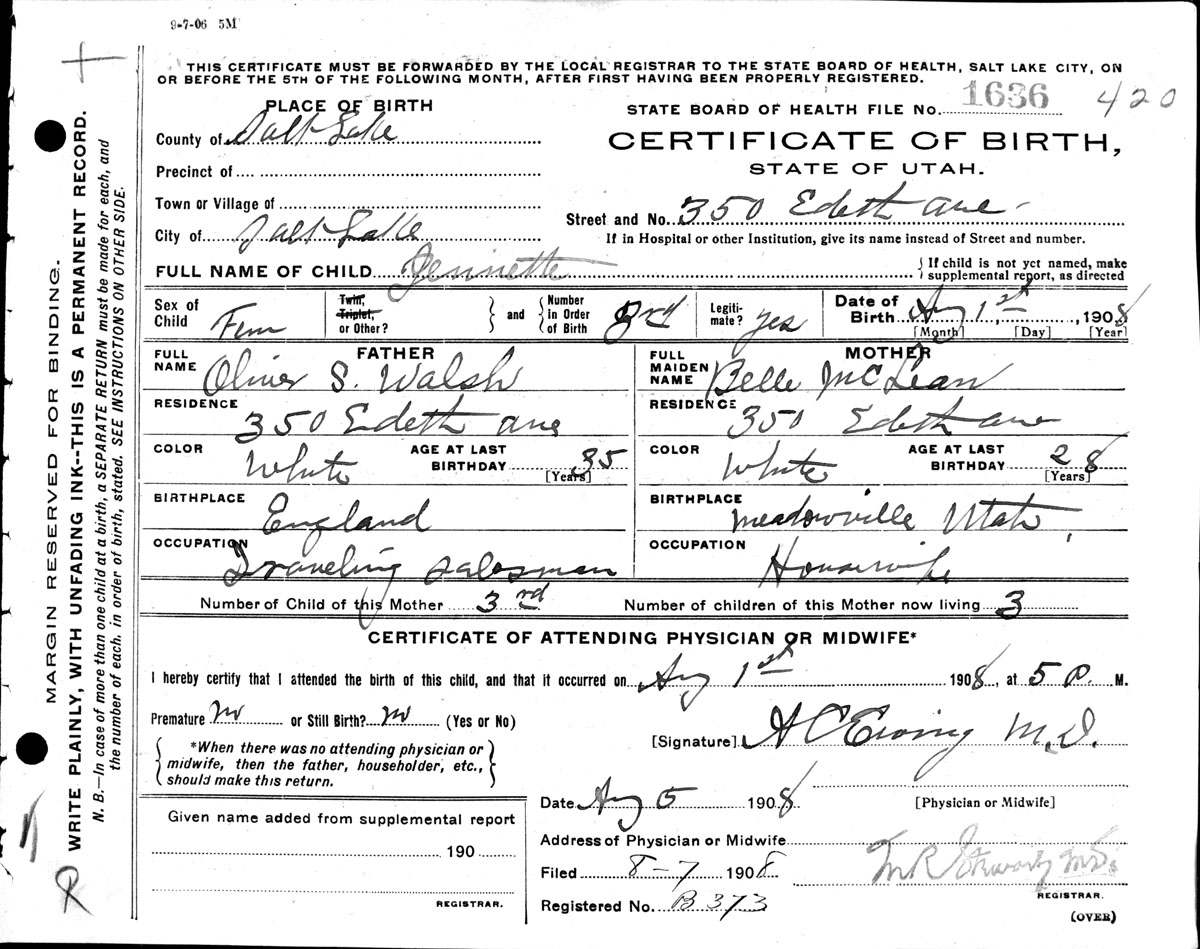 9-7-06 5M
THIS CERTIFICATE MUST BE FORWARDED BY THE LOCAL REGISTRAR TO THE STATE BOARD OF HEALTH, SALT LAKE CITY, ON
OR BEFORE THE 5TH OF THE FOLLOWING MONTH, AFTER FIRST HAVING BEEN PROPERLY REGISTERED.
STATE BOARD OF HEALTH FILE No. 1636 420
CERTIFICATE OF BIRTH,
STATE OF UTAH.
PLACE OF BIRTH
County of Salt Lake
Precinct of
Town or Village of
City of Salt Lake
Street and No. 350 Edeth ave
If in Hospital or other Institution, give its name instead of Street and number.
FULL NAME OF CHILD Jennette
{ If child is not yet named, make
supplemental report, as directed
Sex of Child Fem
Twin, Triplet, or Other? } and { Number in Order of Birth 3rd
Legitimate? yes
Date of Birth Aug 1st, 1908
[Month] [Day] [Year]
FATHER
FULL NAME Oliver S. Walsh
RESIDENCE 350 Edeth ave
COLOR White AGE AT LAST BIRTHDAY 35 [Years]
BIRTHPLACE England
OCCUPATION Traveling salesman
MOTHER
FULL MAIDEN NAME Belle McLean
RESIDENCE 350 Edeth ave
COLOR White AGE AT LAST BIRTHDAY 28 [Years]
BIRTHPLACE Meadowville Utah,
OCCUPATION Housewife
Number of Child of this Mother 3rd Number of children of this Mother now living 3
CERTIFICATE OF ATTENDING PHYSICIAN OR MIDWIFE*
I hereby certify that I attended the birth of this child, and that it occurred on Aug 1st 1908, at 5 P. M.
Premature no or Still Birth? no (Yes or No)
{ *When there was no attending physician or
midwife, then the father, householder, etc.,
should make this return. }
[Signature] A C Ewing M.D.
[Physician or Midwife]
Date Aug 5 1908
Address of Physician or Midwife
Filed 8-7 1908
Registered No. B 373
M.D.
REGISTRAR.
(OVER)
Given name added from supplemental report
190
REGISTRAR.
MARGIN RESERVED FOR BINDING.
WRITE PLAINLY, WITH UNFADING INK--THIS IS A PERMANENT RECORD.
N. B.—In case of more than one child at a birth, a SEPARATE RETURN must be made for each, and
the number of each, in order of birth, stated. SEE INSTRUCTIONS ON OTHER SIDE.